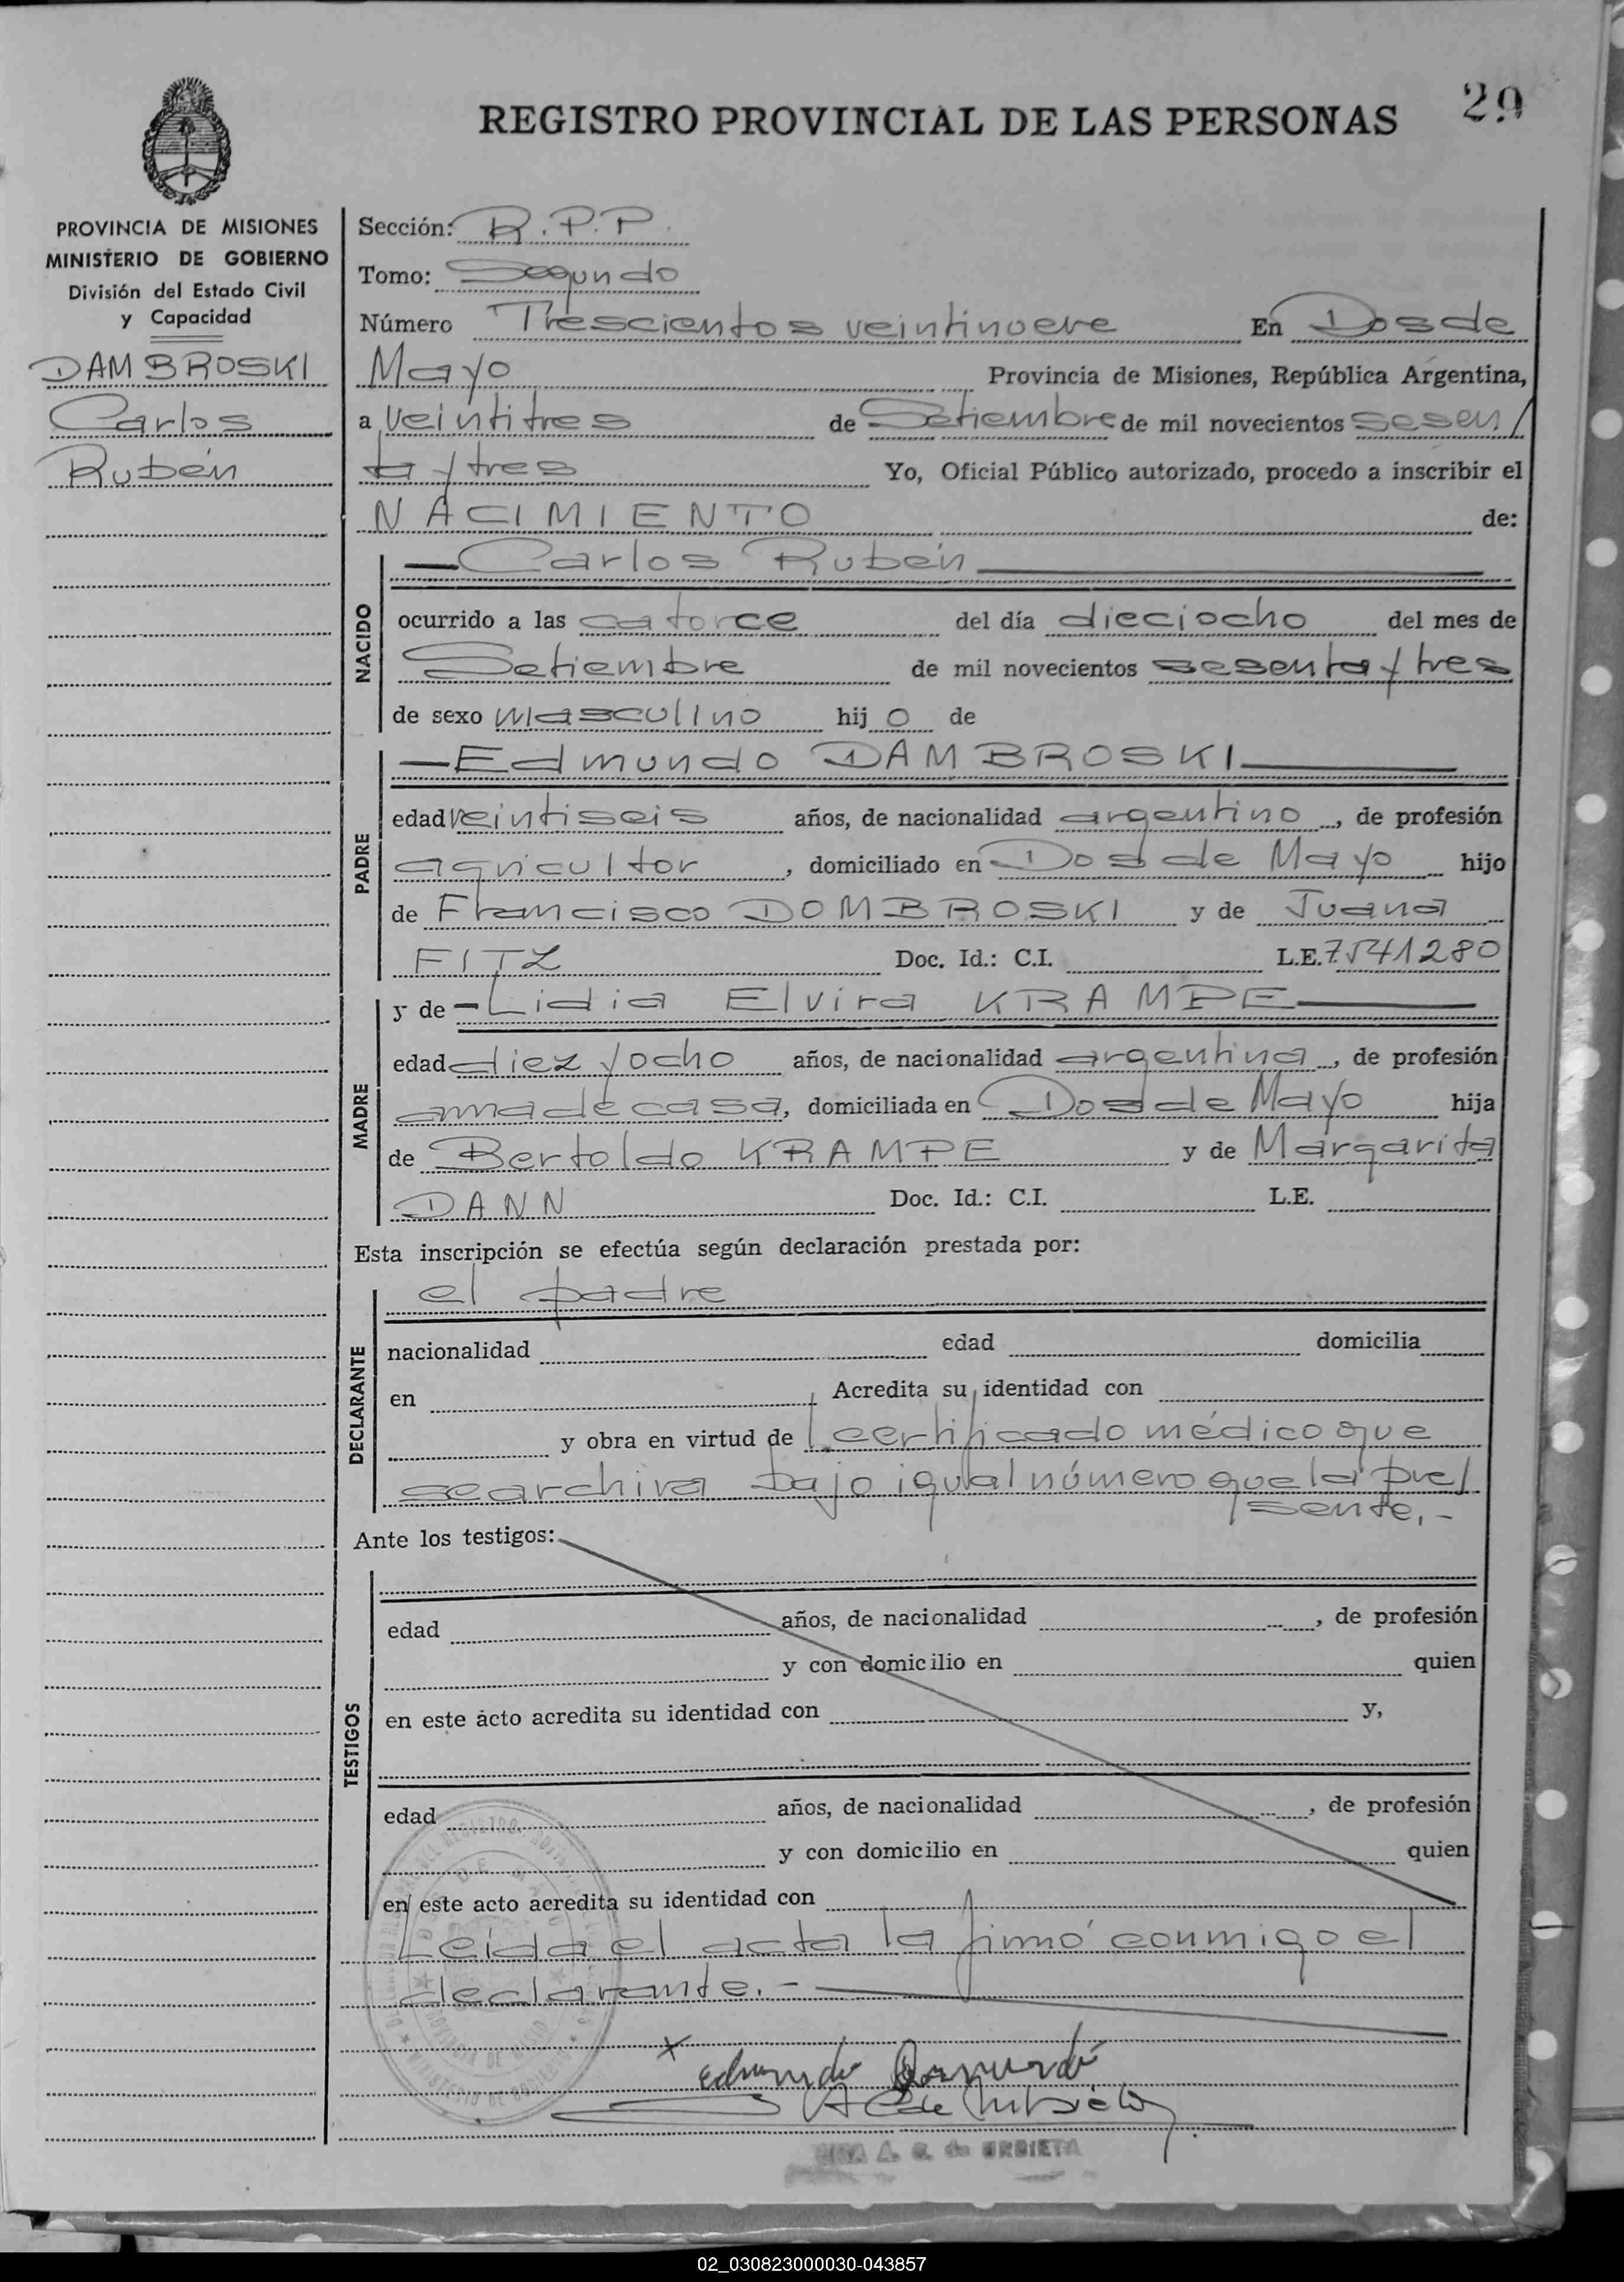 REGISTRO PROVINCIAL DE LAS PERSONAS
29
PROVINCIA DE MISIONES
MINISTERIO DE GOBIERNO
División del Estado Civil
y Capacidad
DAMBROSKI
Carlos
Rubén
Sección: R.P.P.
Tomo: Segundo
Número Trescientos veintinueve En Dos de
Mayo Provincia de Misiones, República Argentina,
a veintitres de Setiembre de mil novecientos sesen/
ta y tres Yo, Oficial Público autorizado, procedo a inscribir el
NACIMIENTO de:
NACIDO
—Carlos Rubén—
ocurrido a las catorce del día dieciocho del mes de
Setiembre de mil novecientos sesenta y tres
de sexo masculino hijo de
PADRE
—Edmundo DAMBROSKI—
edad veintiseis años, de nacionalidad argentino, de profesión
agricultor, domiciliado en Dos de Mayo hijo
de Francisco DOMBROSKI y de Juana
FITZ Doc. Id.: C.I. L.E. 7541280
MADRE
y de —Lidia Elvira KRAMPE—
edad diez y ocho años, de nacionalidad argentina, de profesión
ama de casa, domiciliada en Dos de Mayo hija
de Bertoldo KRAMPE y de Margarita
DANN Doc. Id.: C.I. L.E.
Esta inscripción se efectúa según declaración prestada por:
DECLARANTE
el padre
nacionalidad edad domicilia
en Acredita su identidad con
y obra en virtud de certificado médico que
se archiva bajo igual número que la pre/
sente.-
Ante los testigos:
TESTIGOS
edad años, de nacionalidad , de profesión
y con domicilio en quien
en este acto acredita su identidad con y,
edad años, de nacionalidad , de profesión
y con domicilio en quien
en este acto acredita su identidad con
Leída el acta la firmó conmigo el
declarante.-
x
A. G. de URBIETA
02_030823000030-043857